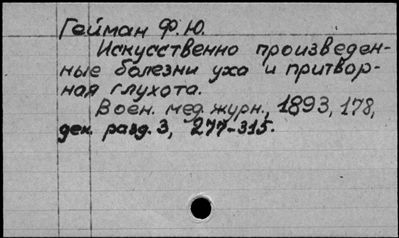 Гейман Ф.Ю.
Искусственно произведен-
ные болезни уха и притвор-
ная глухота.
Воен. мед. журн., 1893, 178,
дек. разд. 3, 277-315.